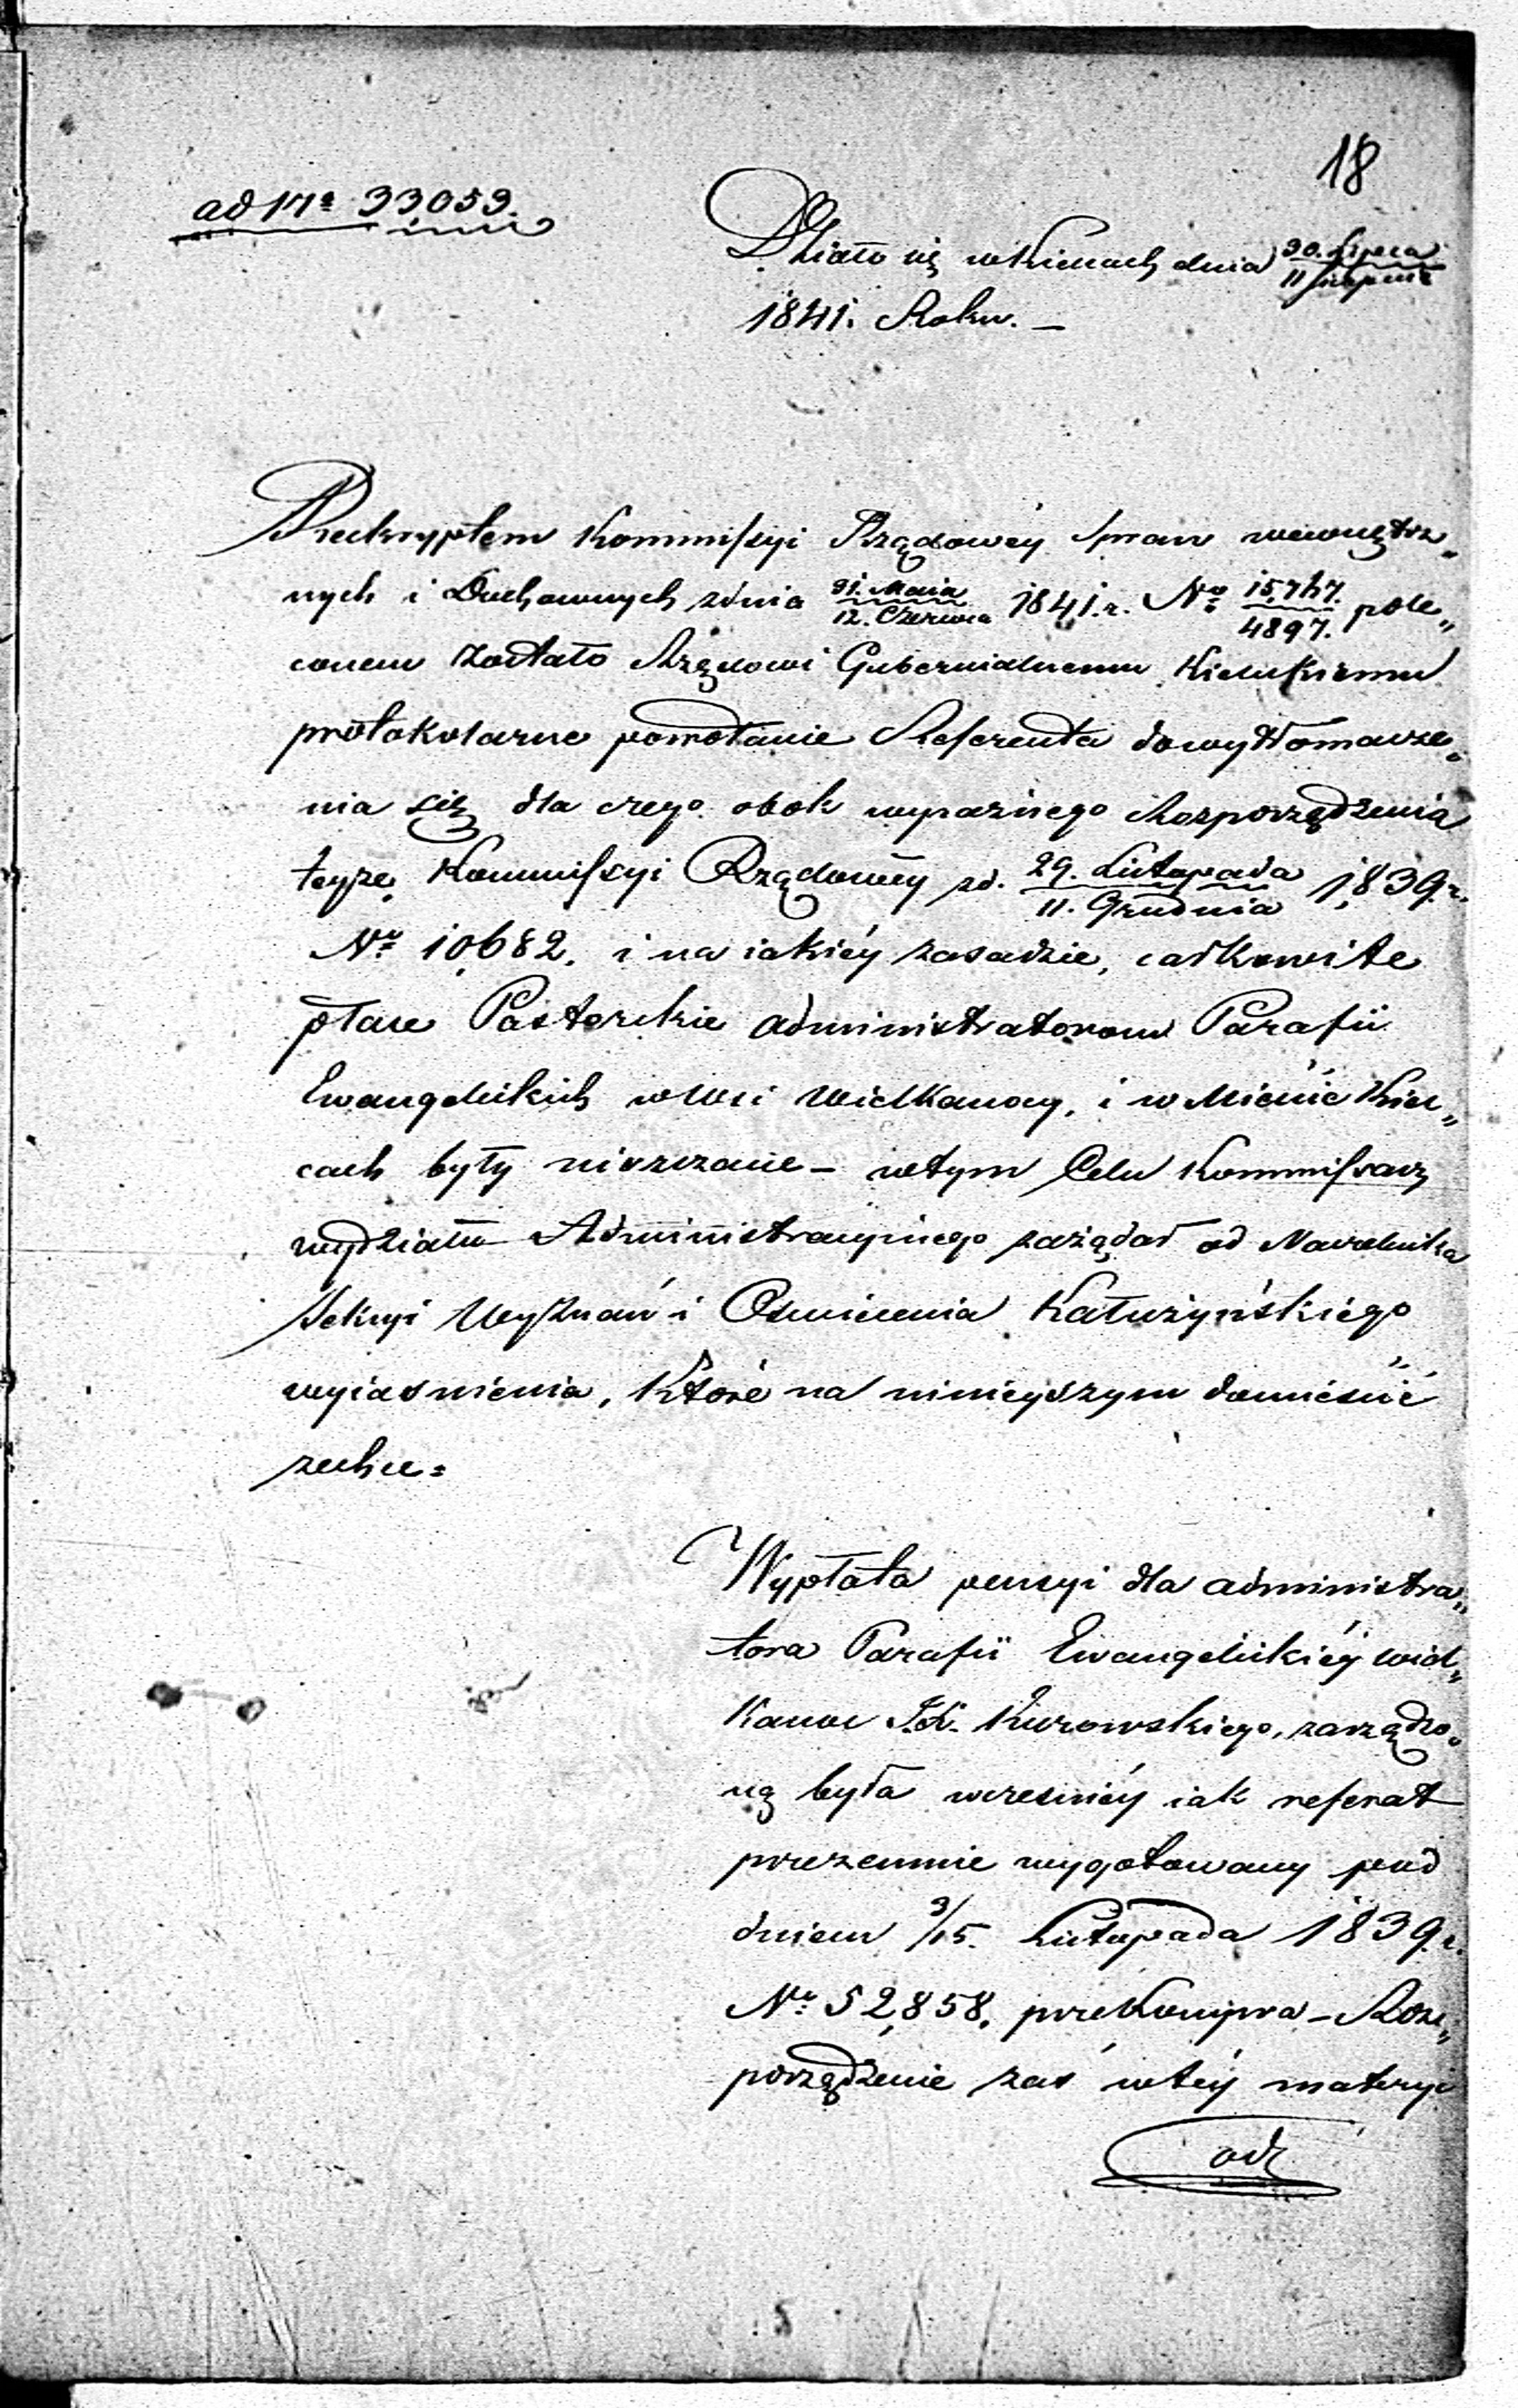 18
ad Nº 33,059.
Działo się w Kielcach dnia 30. Lipca / 11 Sierpnia
1841. Roku. –
Reskryptem Kommissyi Rządowéy Spraw wewnętrz„
nych i Duchownych zdnia 31. Maia / 12. Czerwca 1841. r. Nº 15,747. / 4897. pole„
conem zostało Rządowi Gubernialnemu Kieleckiemu
protokolarne powołanie Referenta do wytłomacze„
nia się dla czego obok wyraźnego Rozporządzenia
teyże Kommissyi Rządowéy zd. 29. Listopada / 11. Grudnia 1839. r.
Nº 10,682. i na iakiéy zasadzie, całkowite
płace Pastorskie administratorom Parafii
Ewangelickich w Wsi Wielkanocy, i w Mieście Kiel„
cach były niszczane – w tym Celu Kommissarz
wydziału Administracyinego zażądał od Naczelnika
Sekcyi Wyznań i Oświecenia Kałużyńskiego
wyiaśnienia, Które na ninieyszym domieścić
zechce =
Wypłata pensyi dla administra„
tora Parafii Ewangelickiéy Wiel„
Kanoc Kurowskiego, zarządzo„
ną była wcześniéy iak referat
przezemnie wygotowany pod
dniem 3/15. Listopada 1839. r.
Nº 52,858. przekonywa – Roz„
porządzenie zaś w téy materyi
od